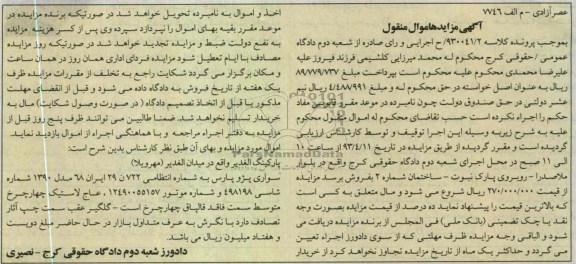 عصر آزادی - م الف ۷۷۴۶
آگهی مزایده اموال منقول
بموجب پرونده کلاسه ۹۳۰۰۴۱/۲/ح اجرایی و رای صادره از شعبه دوم دادگاه
عمومی /حقوقی کرج محکوم له محمد میرزایی کلشیمی فرزند فیروز علیه
علیرضا محمدی محکوم علیه محکوم است بپرداخت مبلغ ۸۹/۷۷۹/۷۳۷
ریال به عنوان اصل خواسته در حق محکوم له و مبلغ ۴/۴۸۸/۹۹۱ ریال نیم
عشر دولتی در حق صندوق دولت چون نامبرده در موعد مقرر قانونی مفاد
حکم را اجراء نکرده است حسب تقاضای محکوم له اموال منقول محکوم
علیه به شرح زیر به وسیله این اجرا توقیف و توسط کارشناس ارزیابی
گردیده است و مقرر گردیده از طریق مزایده در تاریخ ۹۳/۴/۱۱ از ساعت ۱۰
الی ۱۱ صبح در محل اجرای شعبه دوم دادگاه حقوقی کرج واقع در بلوار
ملاصدرا - روبروی پارک نبوت - ساختمان شماره ۲ بفروش برسد مزایده
از قیمت ۲۷۰/۰۰۰/۰۰۰ ریال شروع می شود و مال متعلق به کسی است
که بالاترین قیمت را پیشنهاد نماید ده درصد از قیمت مزایده بصورت وجه
نقد یا چک تضمینی (بانک ملی) فی المجلس از برنده مزایده دریافت می
شود و الباقی وجه مزایده ظرف مهلتی که از سوی دادورز اجراء تعیین
می گردد و حداکثر یک ماه از تاریخ مزایده تجاوز نخواهد کرد از خریدار
اخذ و اموال به نامبرده تحویل خواهد شد در صورتیکه برنده مزایده در
موعد مقرر بقیه بهای اموال را نپردازد سپرده وی پس از کسر هزینه مزایده
به نفع دولت ضبط و مزایده تجدید خواهد شد در صورتیکه روز مزایده
مصادف با ایام تعطیل شود مزایده فردای اداری همان روز در همان ساعت
و مکان برگزار می گردد شکایت راجع به تخلف از مقررات مزایده ظرف
یک هفته از تاریخ فروش به دادگاه داده می شود و قبل از انقضای مهلت
مذکور یا قبل از اتخاذ تصمیم دادگاه (در صورت وصول شکایت) مال به
خریدار تسلیم نخواهد شد. ضمنا طالبین می توانند ظرف پنج روز قبل از
مزایده به دفتر اجراء مراجعه و با هماهنگی اجراء از اموال بازدید نماید.
اموال مورد مزایده و بهای آن طبق نظر کارشناس بدین شرح است:
پارکینگ الغدیر واقع در میدان الغدیر (مهرویلا)
سواری پژو پارس به شماره انتظامی ۷۲۲ ن ۲۹ ایران ۶۸ مدل ۱۳۹۰ شماره
شاسی ۴۹۸۱۹۸ و شماره موتور ۱۲۴۹۰۰۵۵۱۵۷ ، عاج لاستیک چهارچرخ
متوسط سمت فاقد قالپاق چهارچرخ است - گلگیر عقب سمت چپ آثار
تصادف دارد با نگرش به عرف متداول بازار در حال حاضر مبلغ دویست
و هفتاد میلیون ریال می باشد.
دادورز شعبه دوم دادگاه حقوقی کرج - نصیری